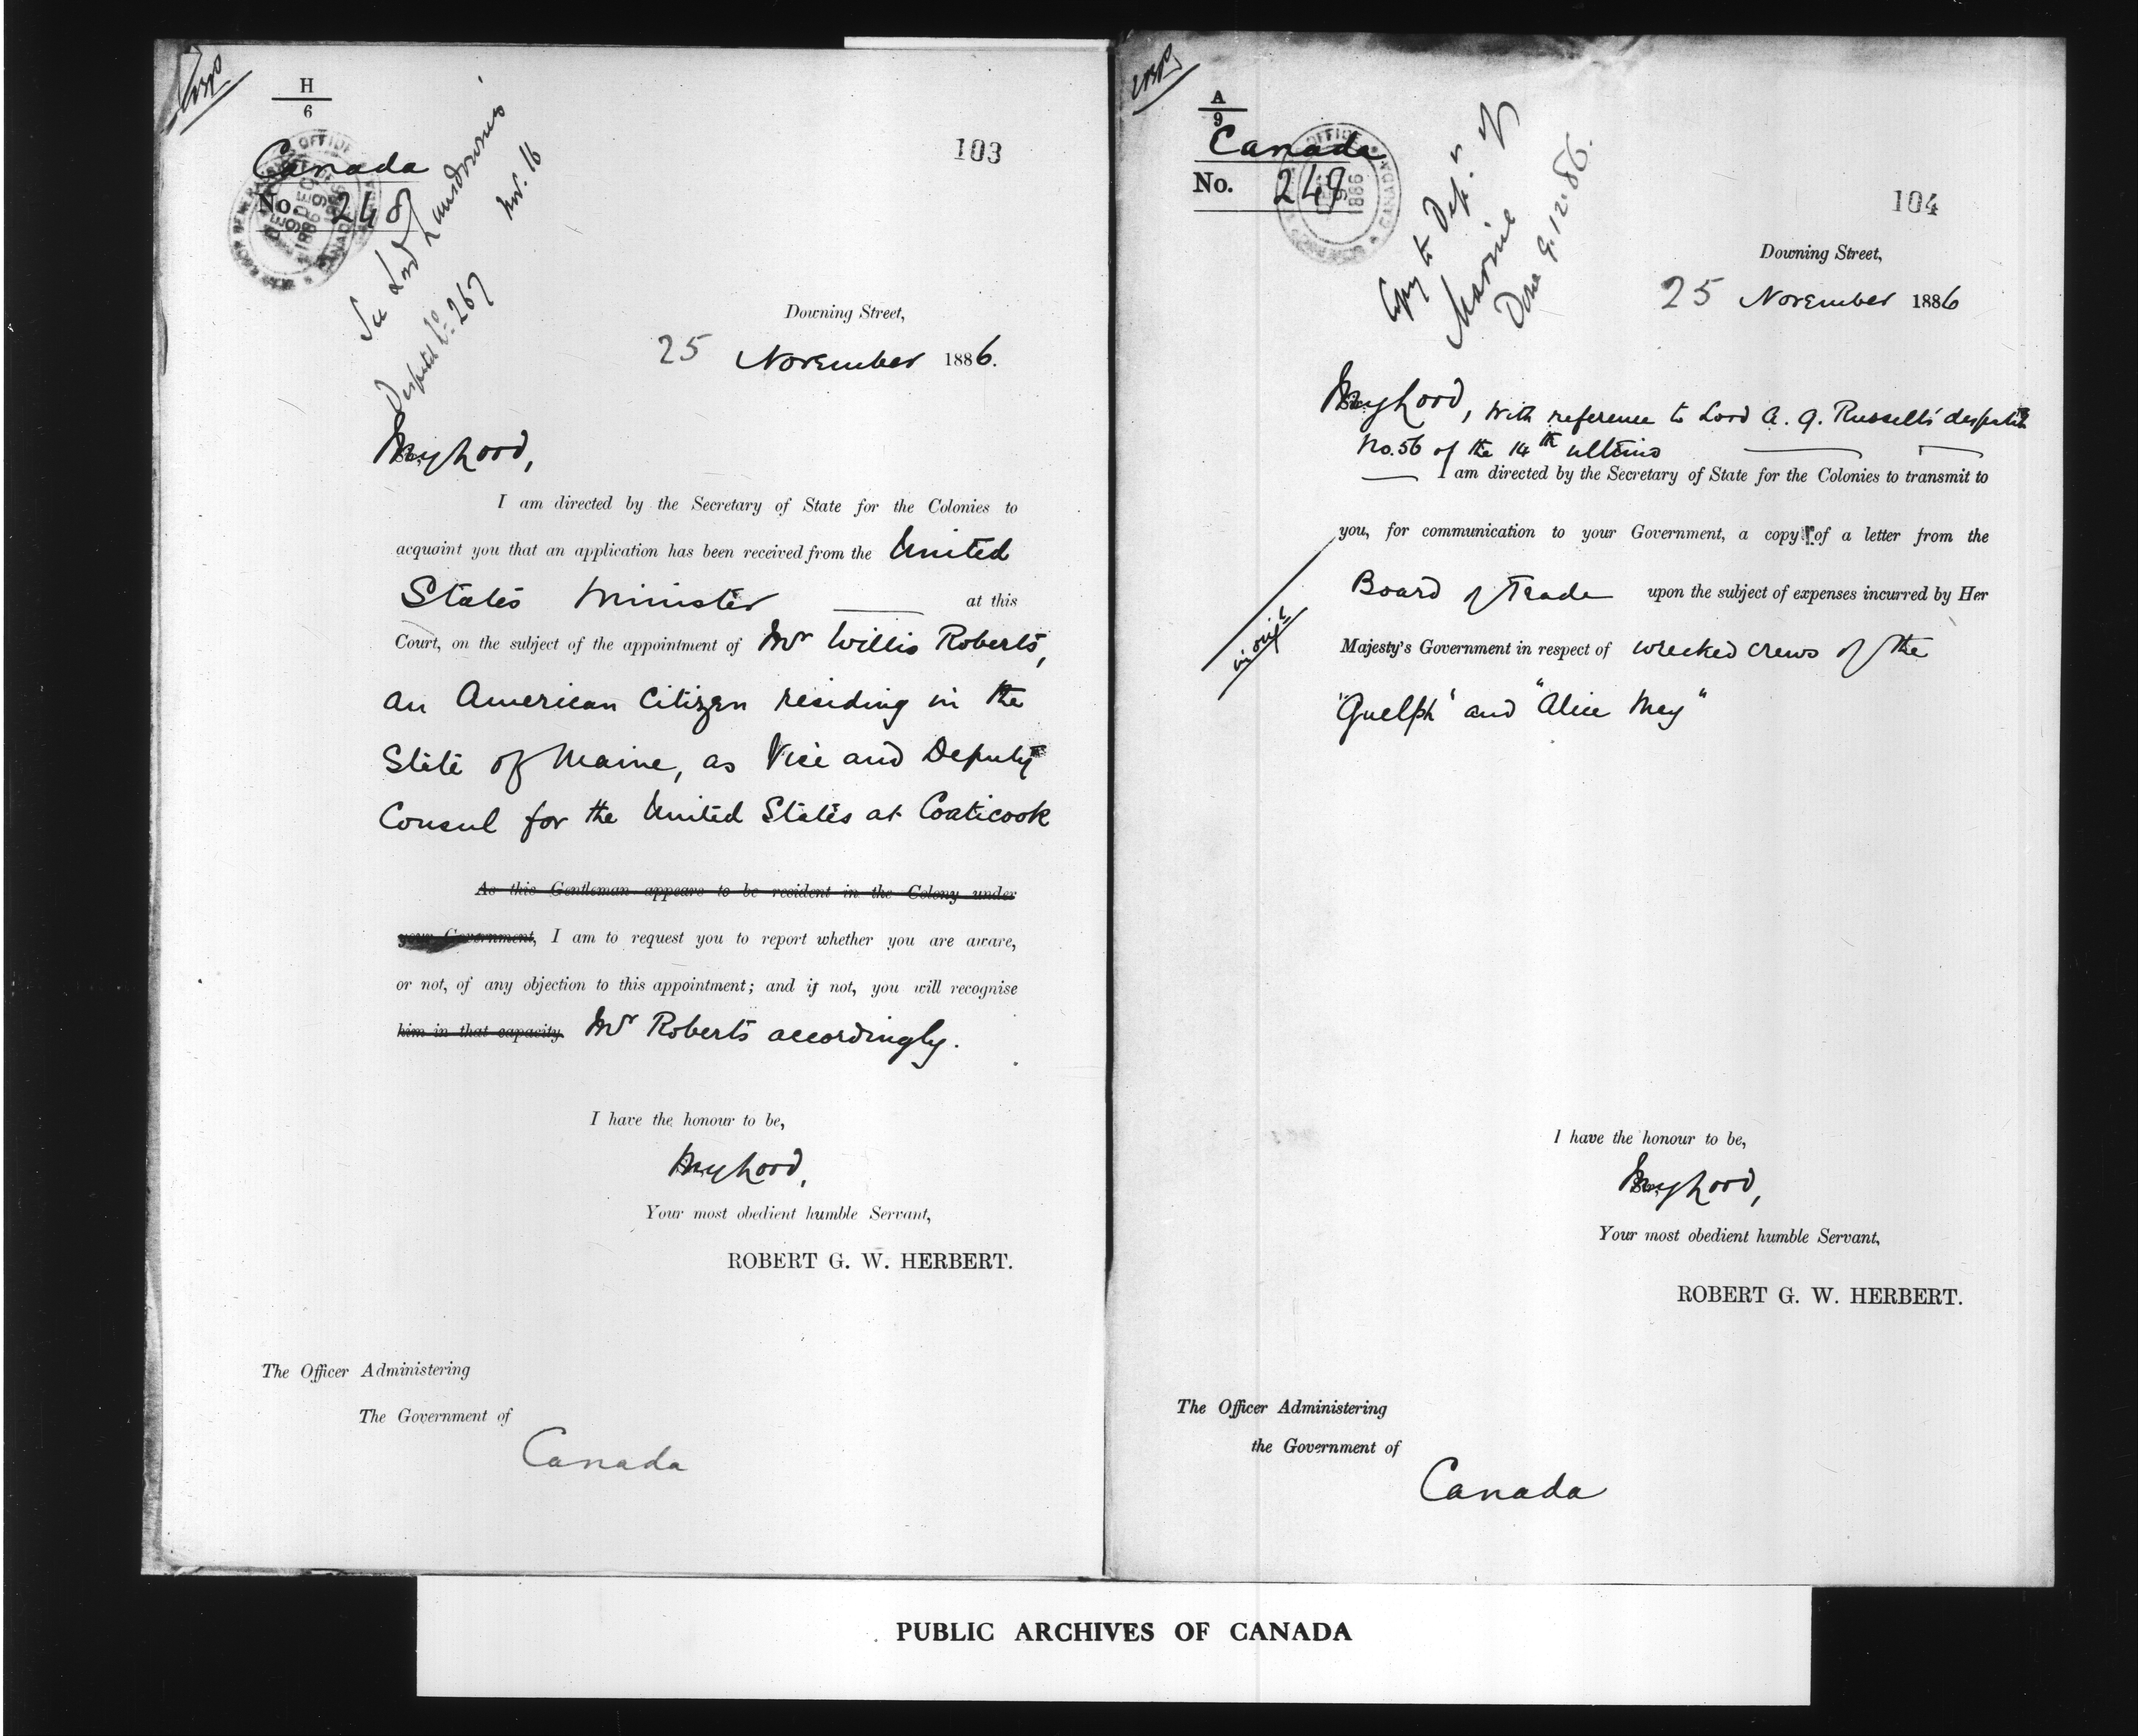 H
6
Canada
No. 248
See Lord Lansdowne's
Despatch No. 267
103
Downing Street,
25 November 1886.
My Lord,
I am directed by the Secretary of State for the Colonies to
acquaint you that an application has been received from the United
States Minister at this
Court, on the subject of the appointment of Mr Willis Roberts,
an American Citizen residing in the
State of Maine, as Vice and Deputy
Consul for the United States at Coaticook
As this Gentleman appears to be resident in the Colony under
your Government, I am to request you to report whether you are aware,
or not, of any objection to this appointment; and if not, you will recognise
him in that capacity. Mr Roberts accordingly.
I have the honour to be,
My Lord,
Your most obedient humble Servant,
ROBERT G. W. HERBERT.
The Officer Administering
The Government of
Canada
A
9
Canada
No. 249
Copy to Dept. of
Marine
Done 9.12.86.
104
Downing Street,
25 November 1886
My Lord, With reference to Lord A. G. Russell's despatch
No. 56 of the 14th ultimo
I am directed by the Secretary of State for the Colonies to transmit to
you, for communication to your Government, a copy of a letter from the
Board of Trade upon the subject of expenses incurred by Her
Majesty's Government in respect of wrecked crews of the
"Guelph" and "Alice May"
I have the honour to be,
My Lord,
Your most obedient humble Servant,
ROBERT G. W. HERBERT.
The Officer Administering
the Government of
Canada
PUBLIC ARCHIVES OF CANADA